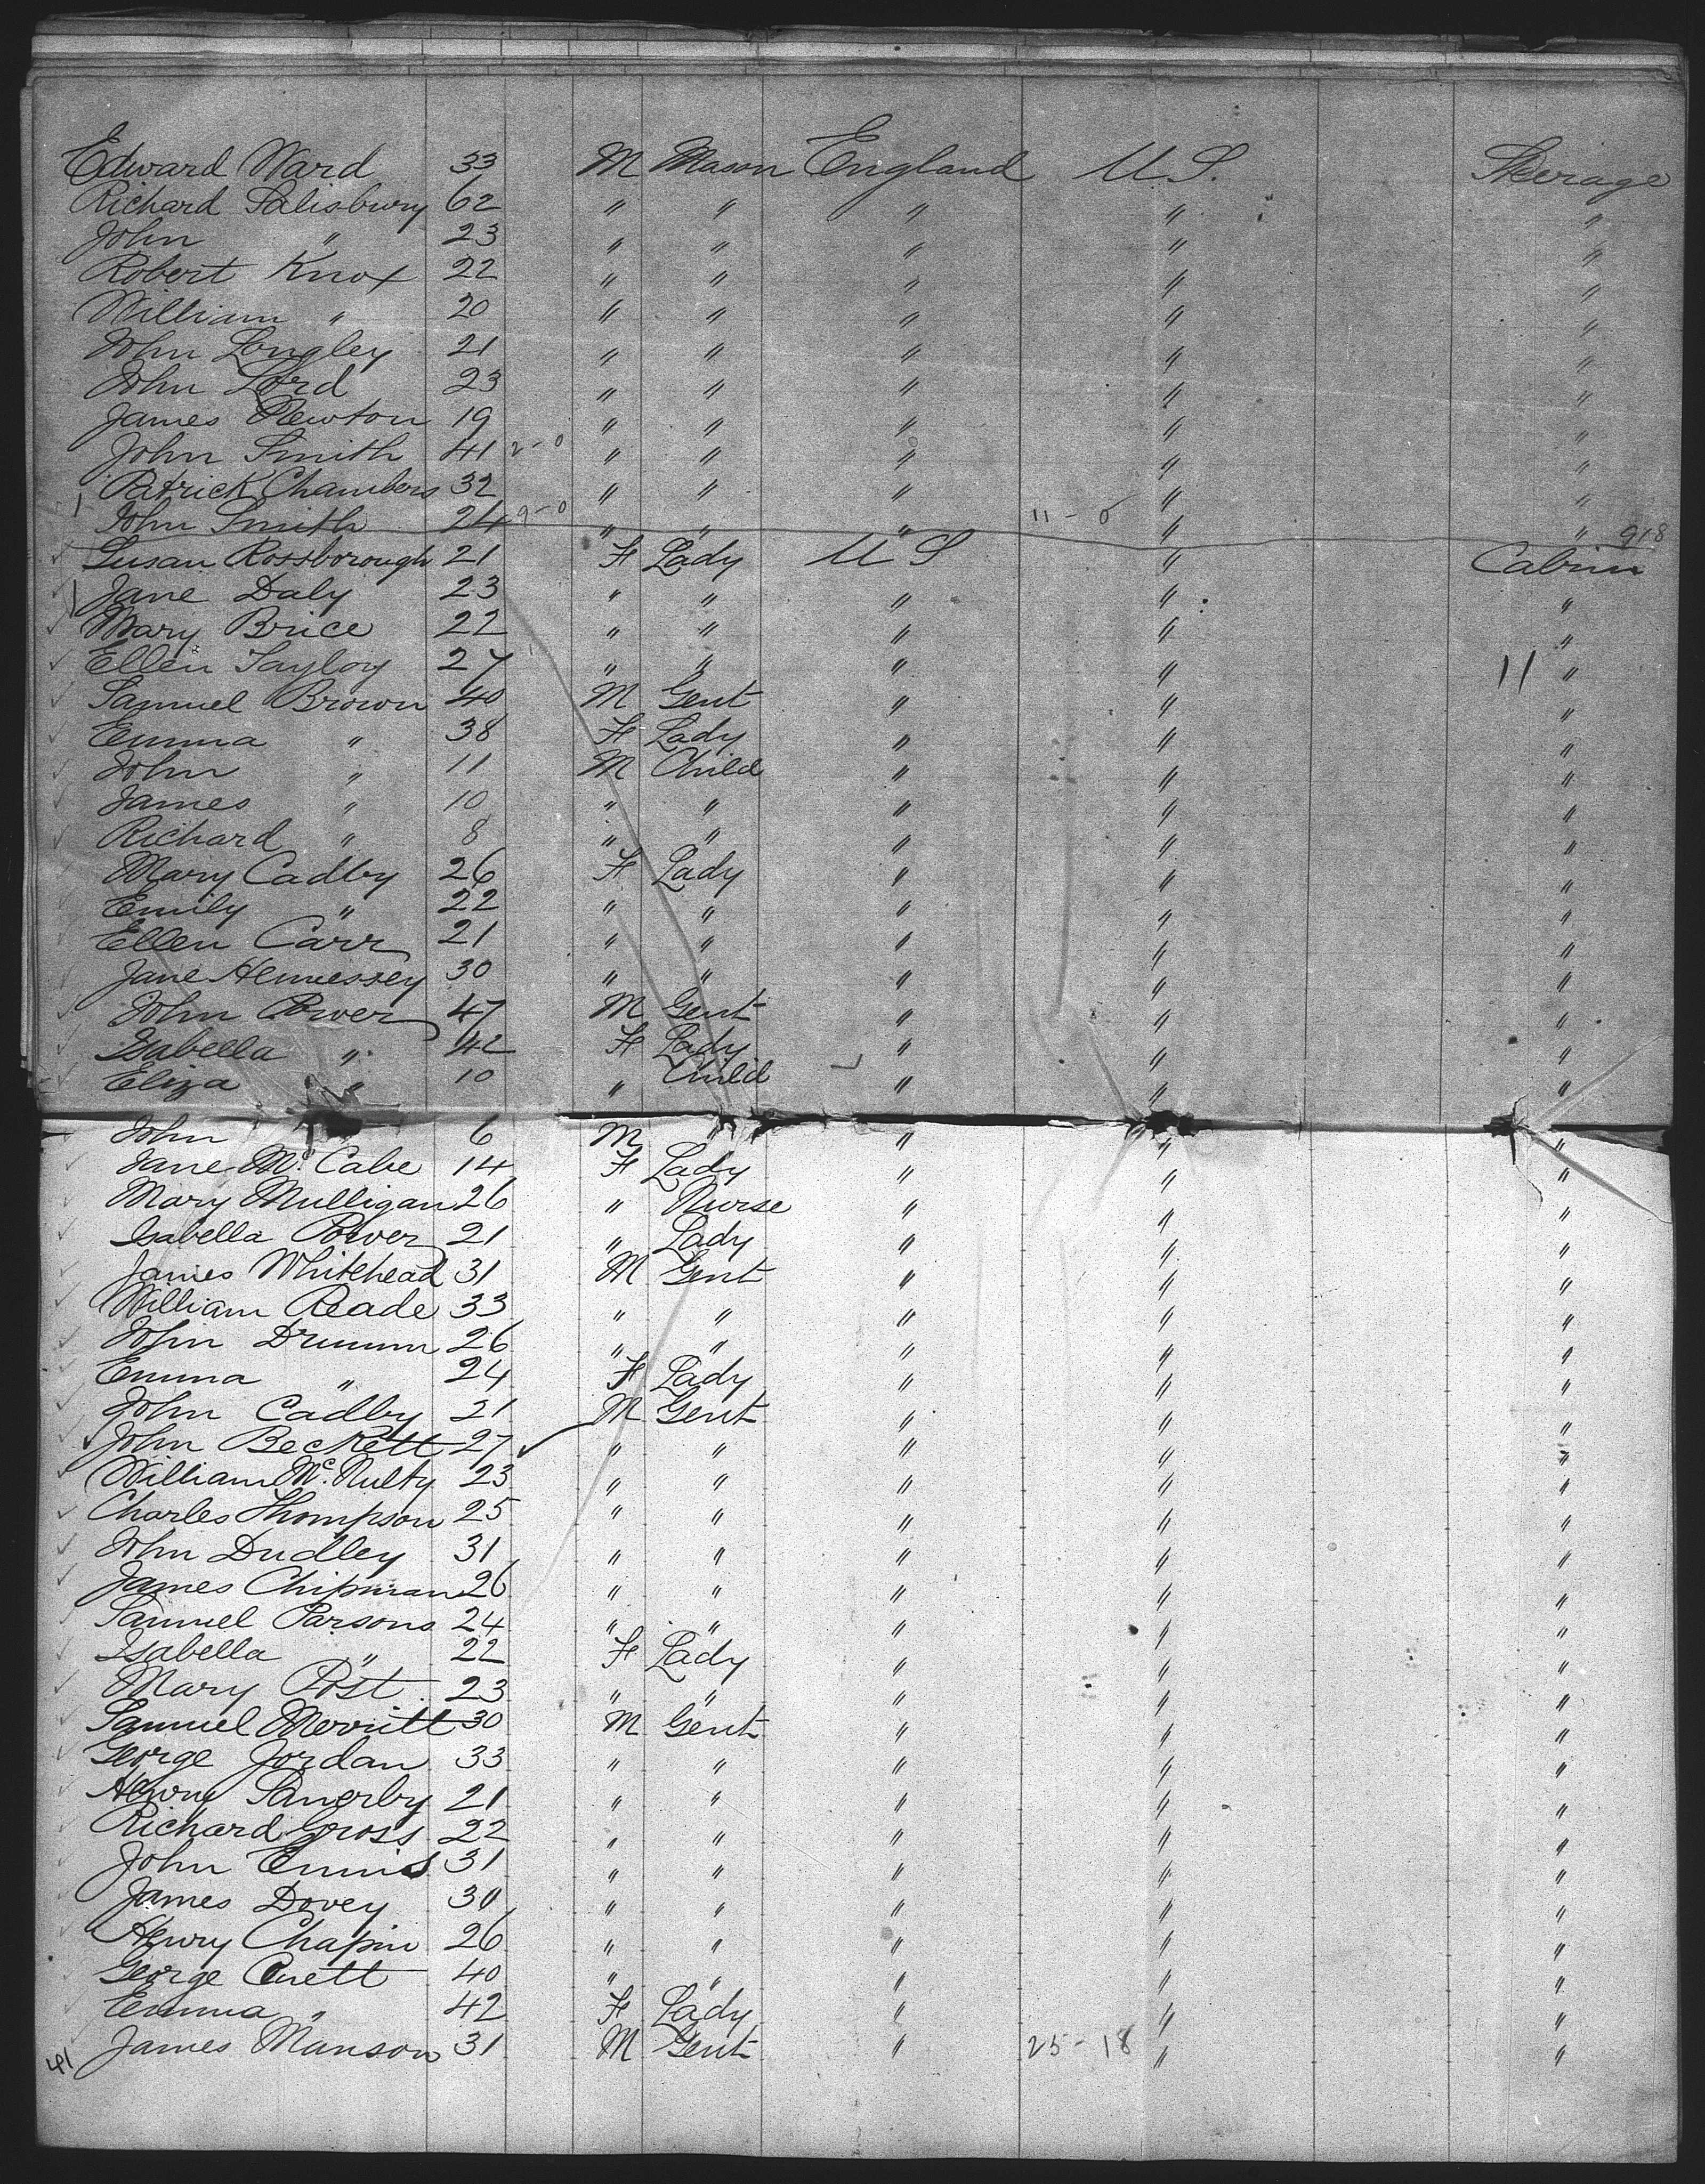 Edward Ward 33 M Mason England U.S. Steerage
Richard Salisbury 62 " " " " "
John " 23 " " " " "
Robert Knox 22 " " " " "
William " 20 " " " " "
John Longley 21 " " " " "
John Lord 23 " " " " "
James Newton 19 " " " " "
John Smith 41 2-0 " " " " "
Patrick Chambers 32 " " " " "
John Smith 24 9-0 " " " 11-0 " " 918
Susan Rossborough 21 F Lady U S " Cabin
Jane Daly 23 " " " " "
Mary Brice 22 " " " " "
Ellen Taylor 27 " " " " 11 "
Samuel Brown 40 M Gent " " "
Emma " 38 F Lady " " "
John " 11 M Child " " "
James " 10 " " " " "
Richard " 8 " " " " "
Mary Cadby 26 F Lady " " "
Emily " 22 " " " " "
Ellen Carr 21 " " " " "
Jane Hennessey 30 " " " " "
John Power 47 M Gent " " "
Isabella " 42 F Lady " " "
Eliza " 10 " Child " " "
John 6 M " " " "
Jane Mc Cabe 14 F Lady " " "
Mary Mulligan 26 " Nurse " " "
Isabella Power 21 " Lady " " "
James Whitehead 31 M Gent " " "
William Reade 33 " " " " "
John Drumm 26 " " " " "
Emma " 24 F Lady " " "
John Cadby 21 M Gent " " "
John Beckett 27 " " " " "
William Mc. Nulty 23 " " " " "
Charles Thompson 25 " " " " "
John Dudley 31 " " " " "
James Chipman 26 " " " " "
Samuel Parsons 24 " " " " "
Isabella " 22 F Lady " " "
Mary Post 23 " " " " "
Samuel Merritt 30 M Gent " " "
George Jordan 33 " " " " "
Henry 21 " " " " "
Richard Gross 22 " " " " "
John Ennis 31 " " " " "
James Dovey 30 " " " " "
Henry Chapin 26 " " " " "
George 40 " " " " "
Emma " 42 F Lady " " "
41 James Manson 31 M Gent " 25-18 " "